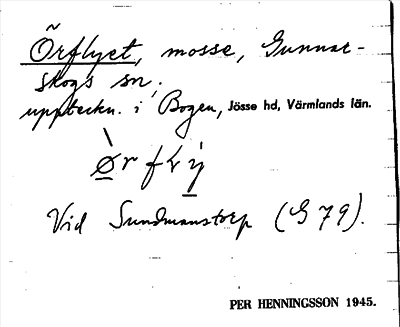 Örflyet, mosse, Gunnar-
skogs sn,
uppteckn. i Bogen, Jösse hd, Värmlands län.
Vid Sundmanstorp (G 79).
PER HENNINGSSON 1945.